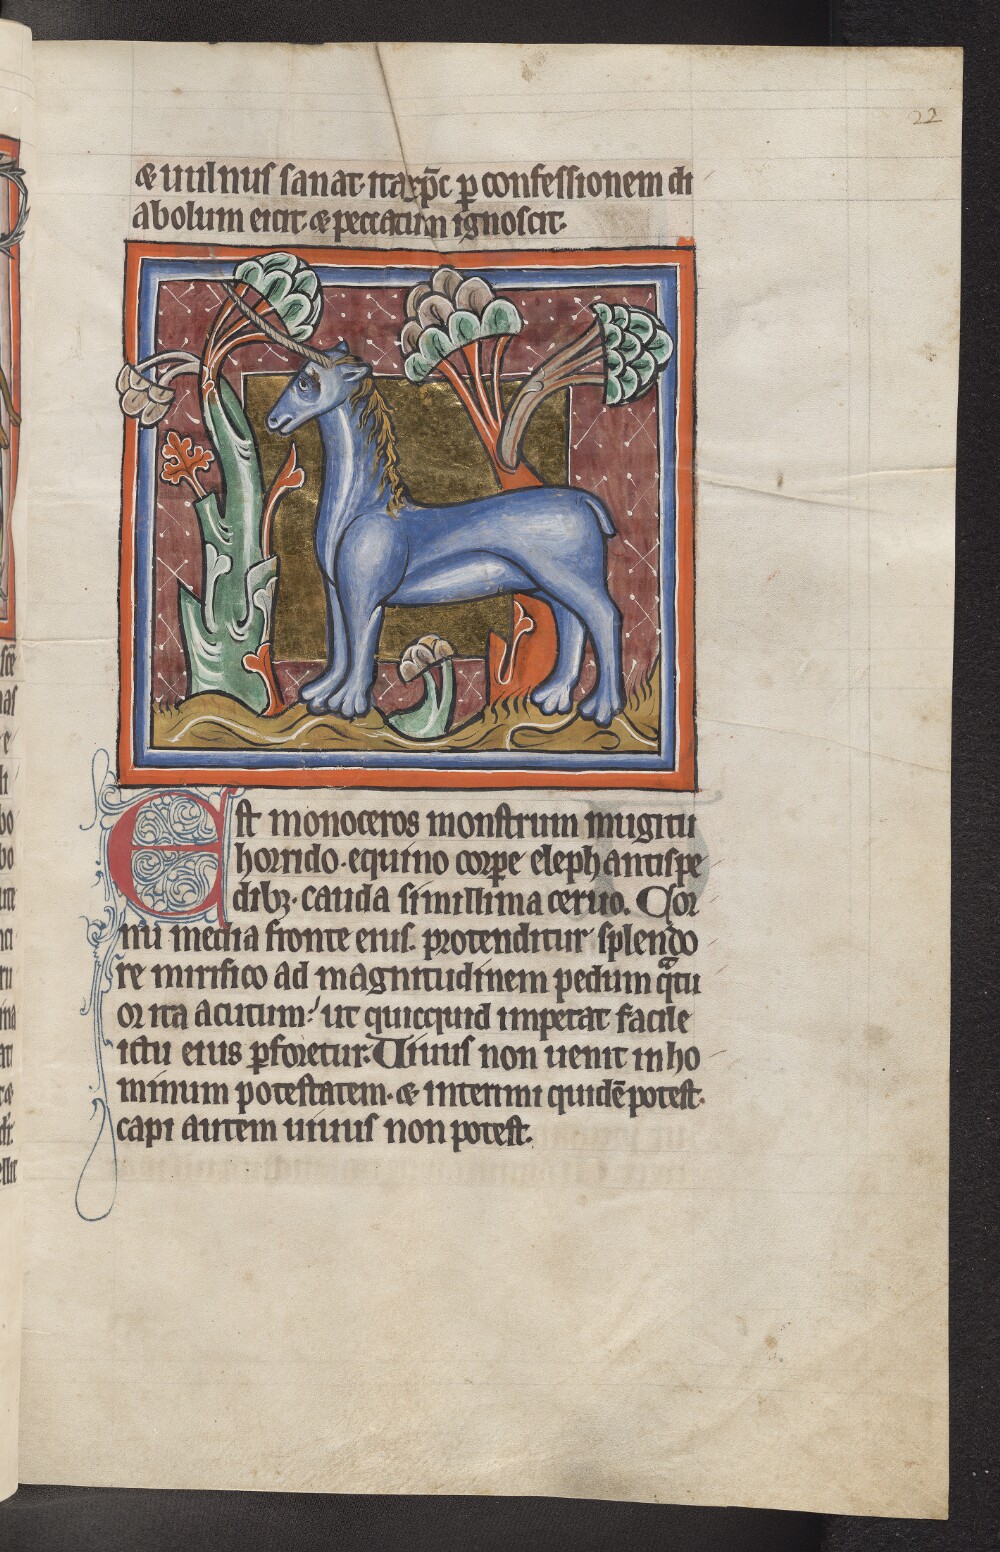 22
& uulnus sanat. ita xp̄c p̱ confessionem di
abolum eicit. & peccatum ignoscit.
Est monoceros monstrum mugitu
horrido. equino corpe elephantis pe
dibꝫ. cauda simillima ceruo. Cor
nu media fronte eius. protenditur splendo
re mirifico ad magnitudinem pedum qᷓtu
or ita acutum: ut quicquid impetat facile
ictu eius ꝑforetur. Viuus non uenit in ho
minum potestatem. & interimi quidē potest.
capi autem uiuus non potest.